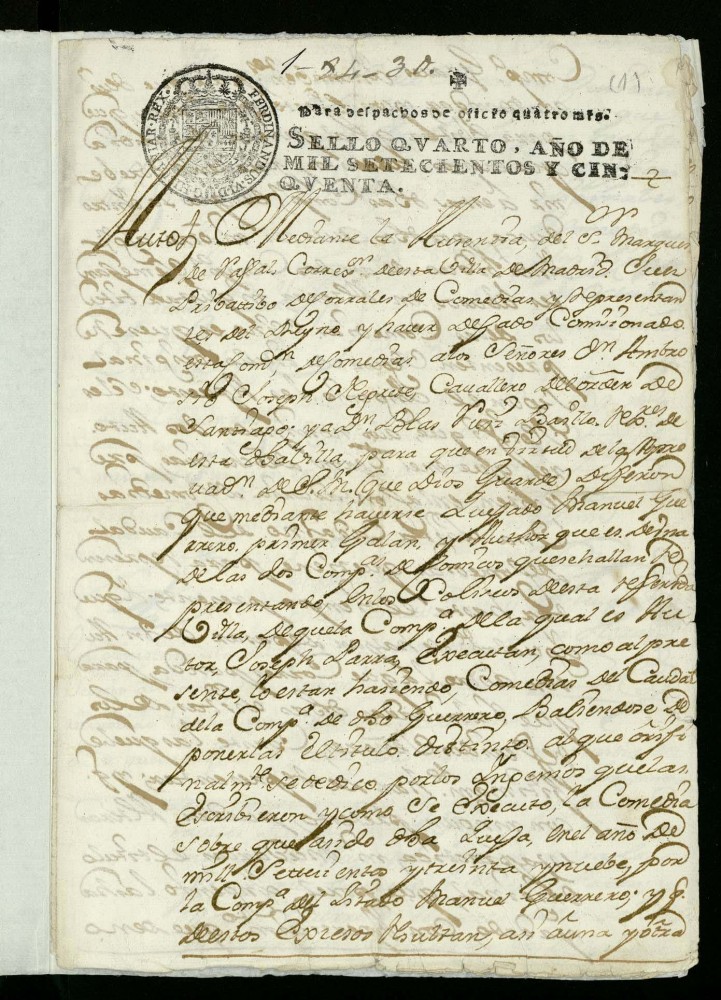 1-84-30.
(1)
Para despachos de oficio quatro mrs.
SELLO QVARTO, AÑO DE
MIL SETECIENTOS Y CIN-
QVENTA.
2
FERDINANDUS
Auto Mediante la Ausencia, del Sr. Marques
de Rafal Corregor. de esta Villa de Madrid Juez
Pribattibo de Corrales de Comedias, y Representan
tes del Reyno, y haver dejado Comisionado
esta Comon. de Comedias a los Señores Dn. Ambro
sio Joseph Negrete, Cavallero del orden de
Santiago; y a Dn. Blas Ruiz Basillo, Rexres. de
esta dha Villa, para que en virtud de la Apro
vadn. de S.M. (que Dios Guarde) Dijeron
que mediante haverse Quejado Manuel Gue
rrero, primer Galan, y Author que es de una
de las dos Compas. de Comicos que se hallan Re
presentando, en los Colisseos de esta referida
Villa, de que la Compa. de la qual es Au
tor, Joseph Parra, Executan, como al pre
sente, lo estan haziendo, Comedias del Caudal
de la Compa. de dho Guerrero, Baliendose de
ponerlas el titulo distinto al que orixi
nalmte. se dedico, por los Ingenios que las
Escribieron y como Se Executo, la Comedia
sobre que ha sido dha Quexa, en el año de
mill Settecientos y treinta y nuebe, por
la Compa. del zitado Manuel Guerrero; y q.
de estos Excesos Resultan, asi a una y otra